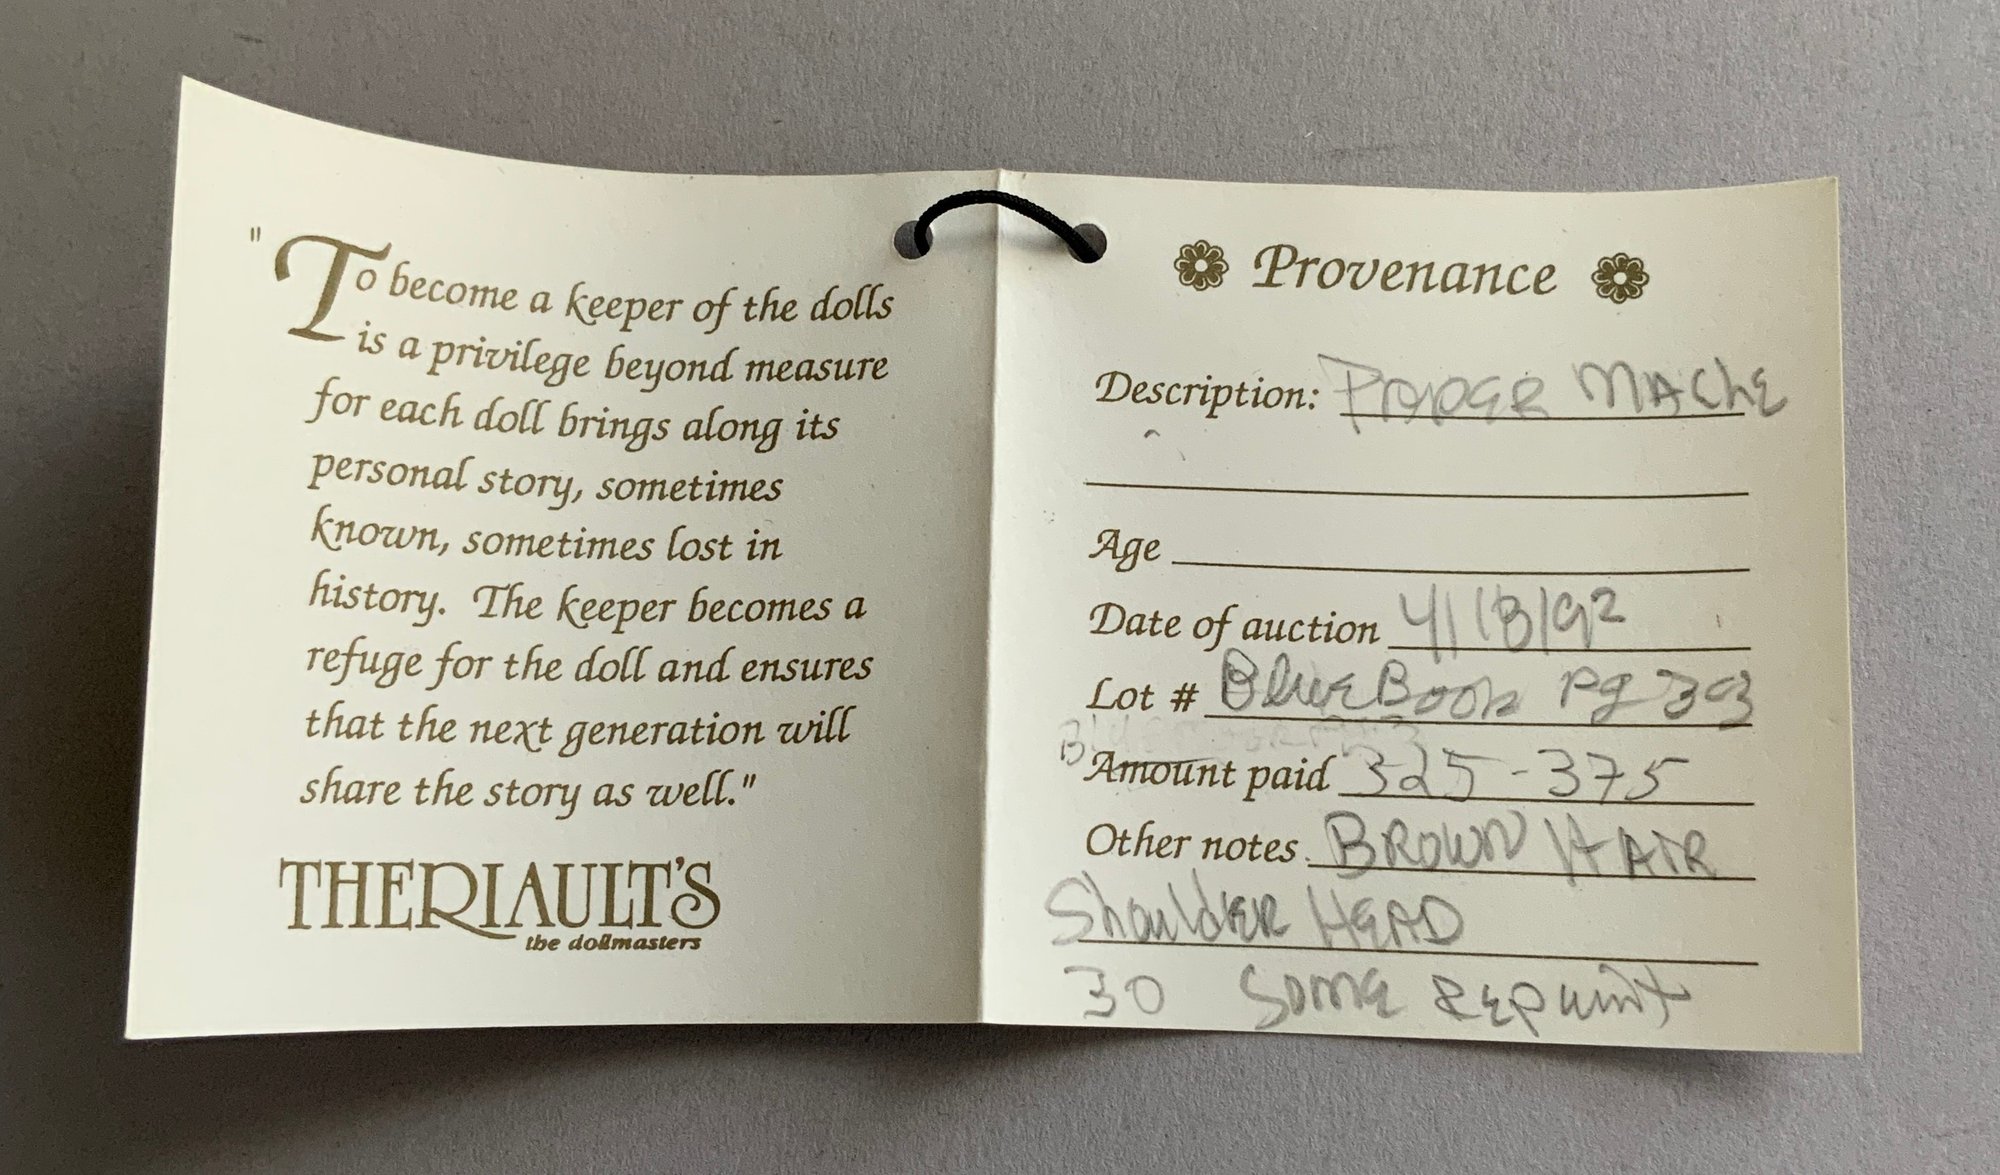 "To become a keeper of the dolls
is a privilege beyond measure
for each doll brings along its
personal story, sometimes
known, sometimes lost in
history. The keeper becomes a
refuge for the doll and ensures
that the next generation will
share the story as well."
THERIAULT'S
the dollmasters
Provenance
Description: PAPER MACHE
Age
Date of auction 4/13/92
Lot # BlueBook Pg 303
Amount paid 325-375
Other notes BROWN HAIR
ShoulDER HEAD
30 SOME REPAINT